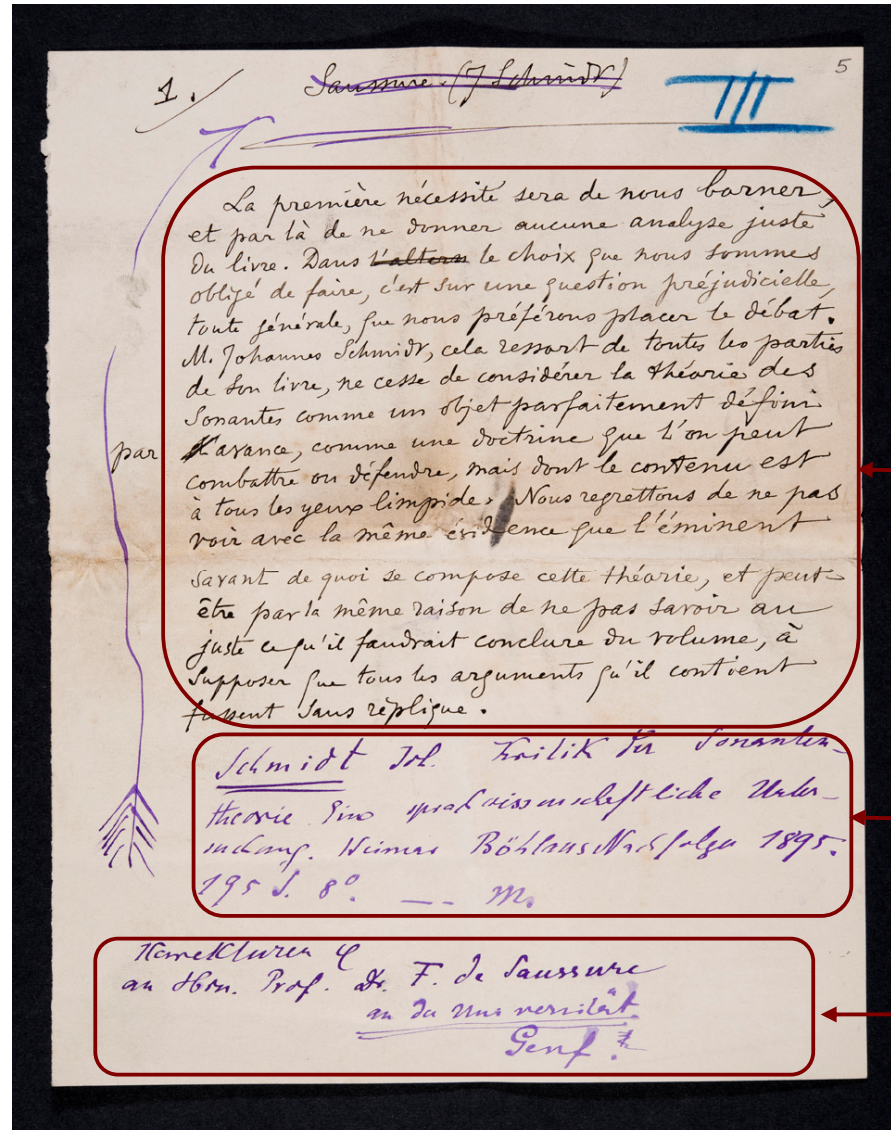 5
1.
Saussure. (J Schmidt)
III
La première nécessité sera de nous borner,
et par là de ne donner aucune analyse juste
du livre. Dans l'altern le choix que nous sommes
obligé de faire, c'est sur une question préjudicielle,
toute générale, que nous préférons placer le débat.
M. Johannes Schmidt, cela ressort de toutes les parties
de son livre, ne cesse de considérer la théorie des
Sonantes comme un objet parfaitement défini
par d'avance, comme une doctrine que l'on peut
combattre ou défendre, mais dont le contenu est
à tous les yeux limpide. Nous regrettons de ne pas
voir avec la même évidence que l'éminent
savant de quoi se compose cette théorie, et peut-
être par la même raison de ne pas savoir au
juste ce qu'il faudrait conclure du volume, à
supposer que tous les arguments qu'il contient
fussent sans réplique.
Schmidt Joh. Kritik der Sonanten-
theorie Eine sprachwissenschaftliche Unter-
suchung. Weimar Böhlaus Nachfolger 1895.
195 S. 8°. — M.
Korrekturen
an Hrn. Prof. Dr. F. de Saussure
an der Universität
Genf